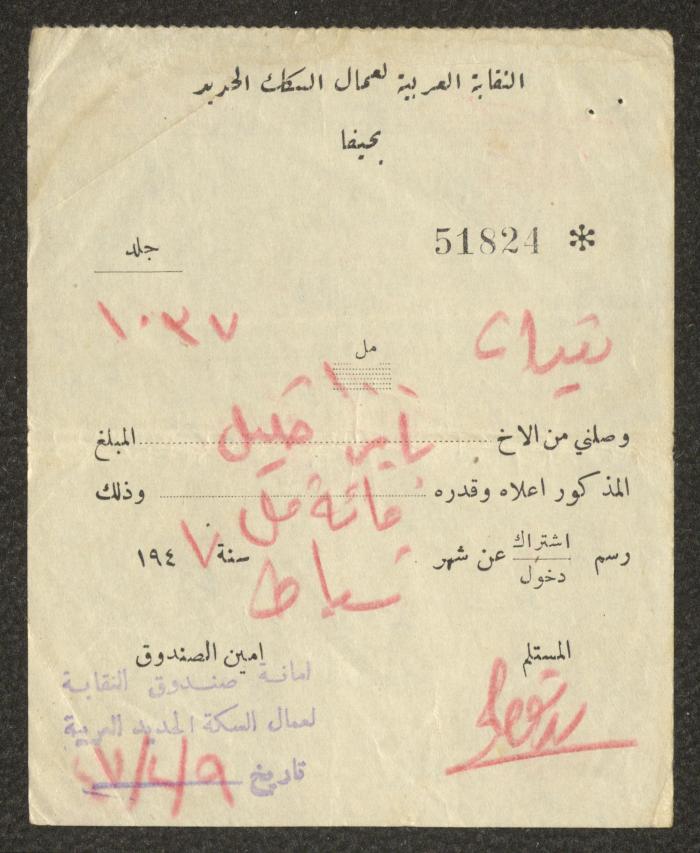 النقابة العربية لعمال السكك الحديد
بحيفا
51824 *
جلد
١٠٣٧
مل
١٠٠
وصلني من الاخ خليل المبلغ
المذكور اعلاه وقدره مائة مل وذلك
رسم اشتراك / دخول عن شهر شباط سنة ١٩٤٧
المستلم
امين الصندوق
امانة صندوق النقابة
لعمال السكة الحديد العربية
تاريخ ٩/٤/٤٧